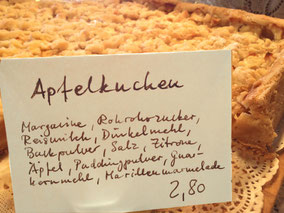 Apfelkuchen
Margarine, Rohrohrzucker,
Reismilch, Dinkelmehl,
Backpulver, Salz, Zitrone,
Äpfel, Puddingpulver, Guar-
kornmehl, Marillenmarmelade
2,80